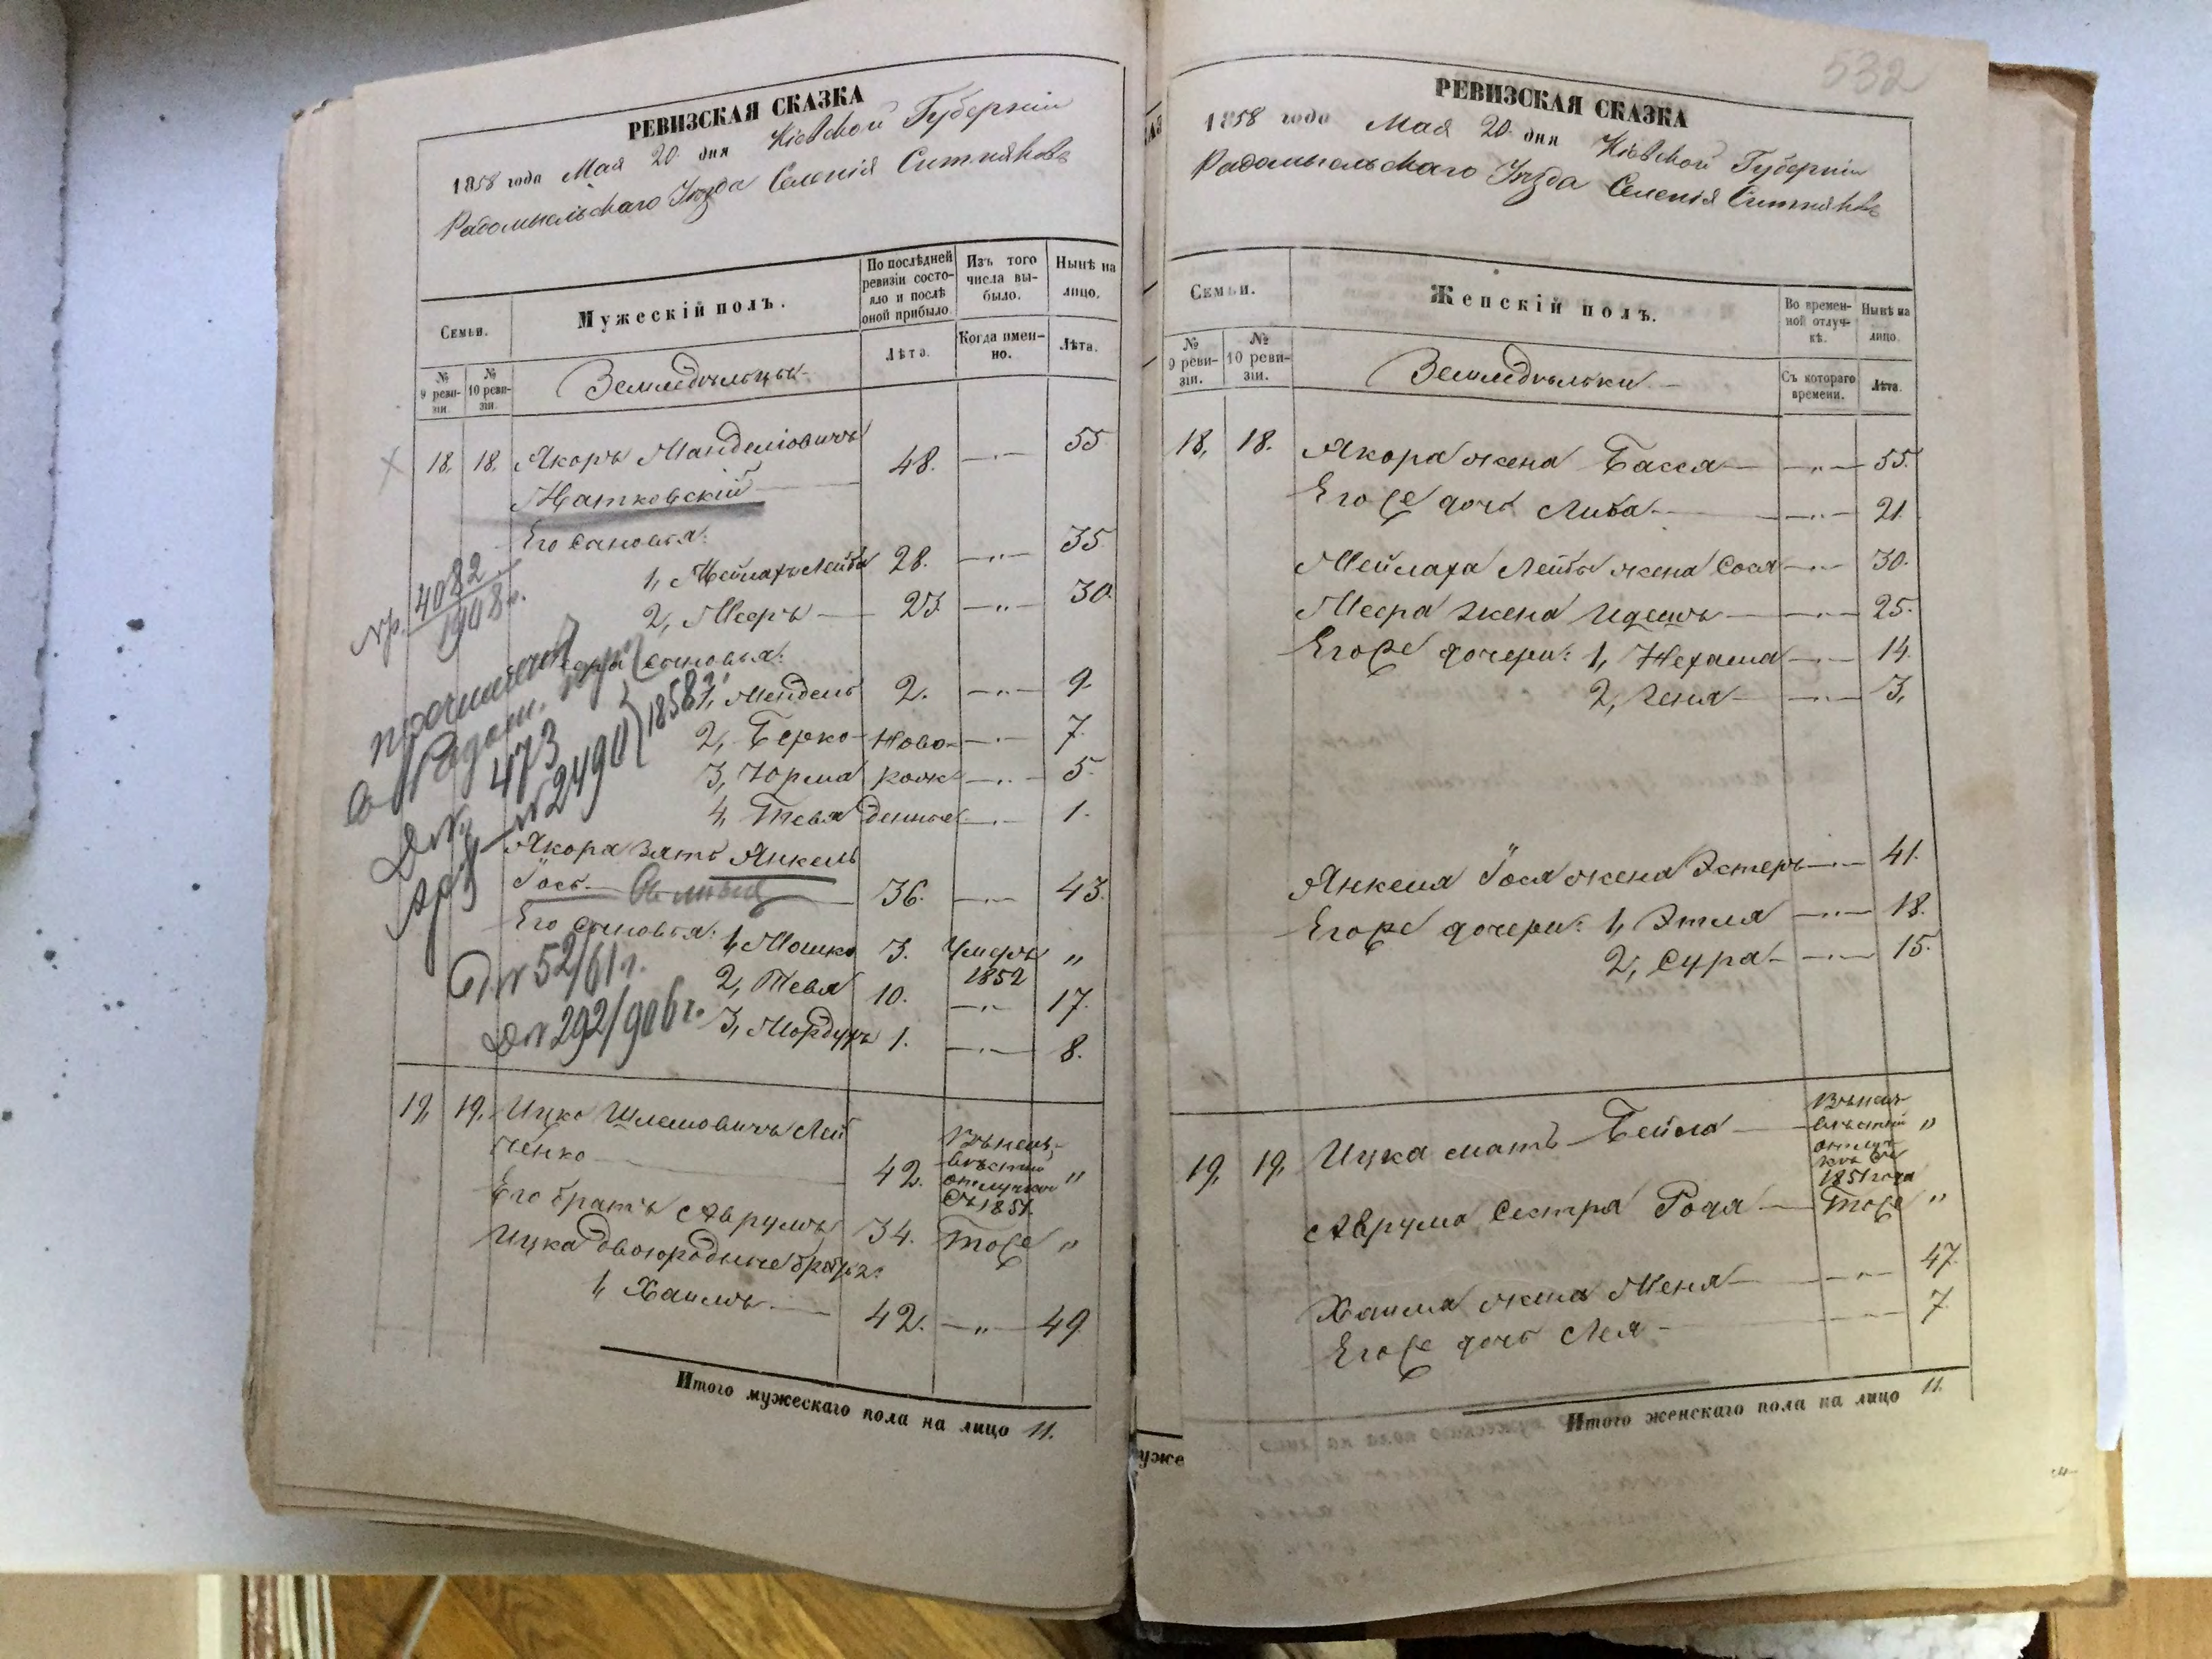 РЕВИЗСКАЯ СКАЗКА
1858 года Мая 20 дня Кіевской Губерніи
Радомысльскаго Уѣзда Селенія Ситняковъ
Семьи.
Мужескій полъ.
По послѣдней ревизіи состояло и послѣ оной прибыло.
Изъ того числа выбыло.
Нынѣ на лицо.
№ 9 ревизіи.
№ 10 ревизіи.
Земледѣльцы
Лѣта.
Когда именно.
Лѣта.
18, 18. Якоръ Манделіовичъ 48. —„— 55
Жатковскій
Его сыновья:
1, Мейлахъ Лейба 28. —„— 35
2, Мееръ — 23 —„— 30.
Нр. 4082
1908 г.
сыновья:
1, Мендель 2. —„— 9.
2, Берко Ново —„— 7.
3, Юрма рож —„— 5.
4, Тевя денные —„— 1.
473
№ 2490 1858 г.
Якора зять Янкель
Іось 36. —„— 43.
Его сыновья: 1, Мошко 3. Умеръ 1852 „
2, Тевя 10. —„— 17.
3, Мордухъ 1. —„— 8.
Д № 52/61 г.
Д № 292/906 г.
19, 19, Ицко Шлемовичъ Лей
ченко 42. Въ неиз-
вѣстной
отлучке
съ 1851. „
Его братъ Аврумъ 34. Тоже „
Ицка двоюродные братья:
1, Хаимъ — 42. —„— 49.
Итого мужескаго пола на лицо 11.
532
РЕВИЗСКАЯ СКАЗКА
1858 года Мая 20 дня Кіевской Губерніи
Радомысльскаго Уѣзда Селенія Ситняковъ
Семьи.
Женскій полъ.
Во временной отлучкѣ.
Нынѣ на лицо.
№ 9 ревизіи.
№ 10 ревизіи.
Земледѣльки
Съ котораго времени.
Лѣта.
18, 18. Якора жена Бася —„— 55.
Его же дочь Либа —„— 21.
Мейлаха Лейбы жена Сося —„— 30.
Меера жена Идешъ —„— 25.
Его же дочери: 1, Нехама —„— 14.
2, Геня —„— 3,
Янкеля Іося жена Эстеръ —„— 41.
Его же дочери: 1, Этля —„— 18.
2, Сура —„— 15.
19, 19, Ицка мать Бейла — Въ неиз-
вѣстной
отлуч-
кѣ съ
1851 года „
Аврума сестра Рода — Тоже „
Хаима жена Женя —„— 47.
Его же дочь Лея — 7.
Итого женскаго пола на лицо 11.
уже